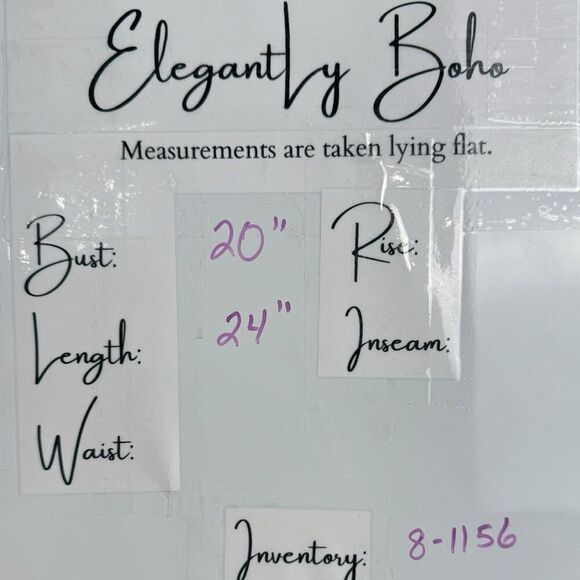 Elegantly Boho
Measurements are taken lying flat.
Bust: 20" Rise:
Length: 24" Inseam:
Waist:
Inventory: 8-1156